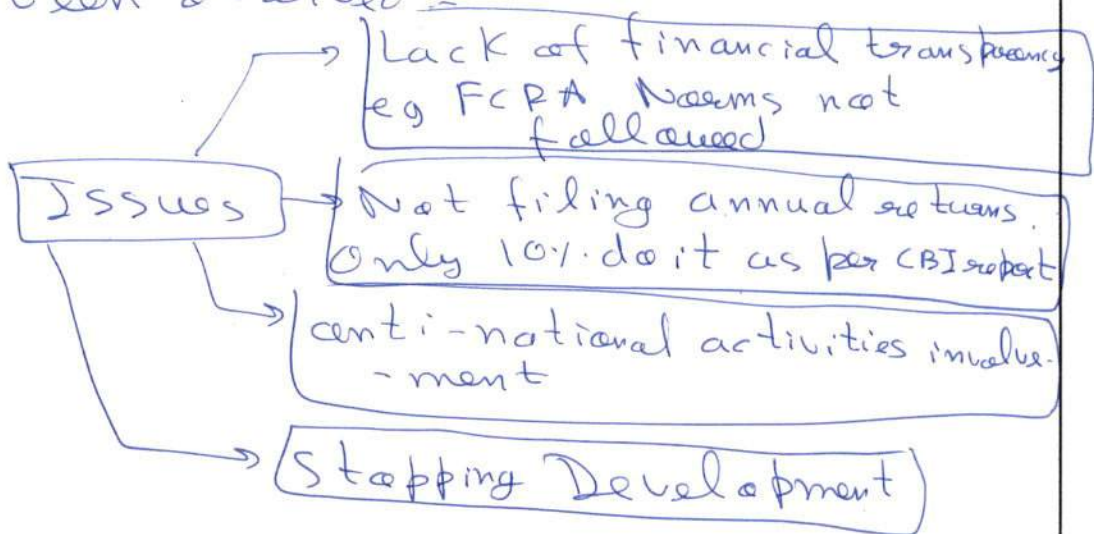 Lack of financial transparency
eg FCRA Norms not
followed
Issues
Not filing annual returns.
Only 10%. do it as per CBI report
anti-national activities involve-
-ment
Stopping Development